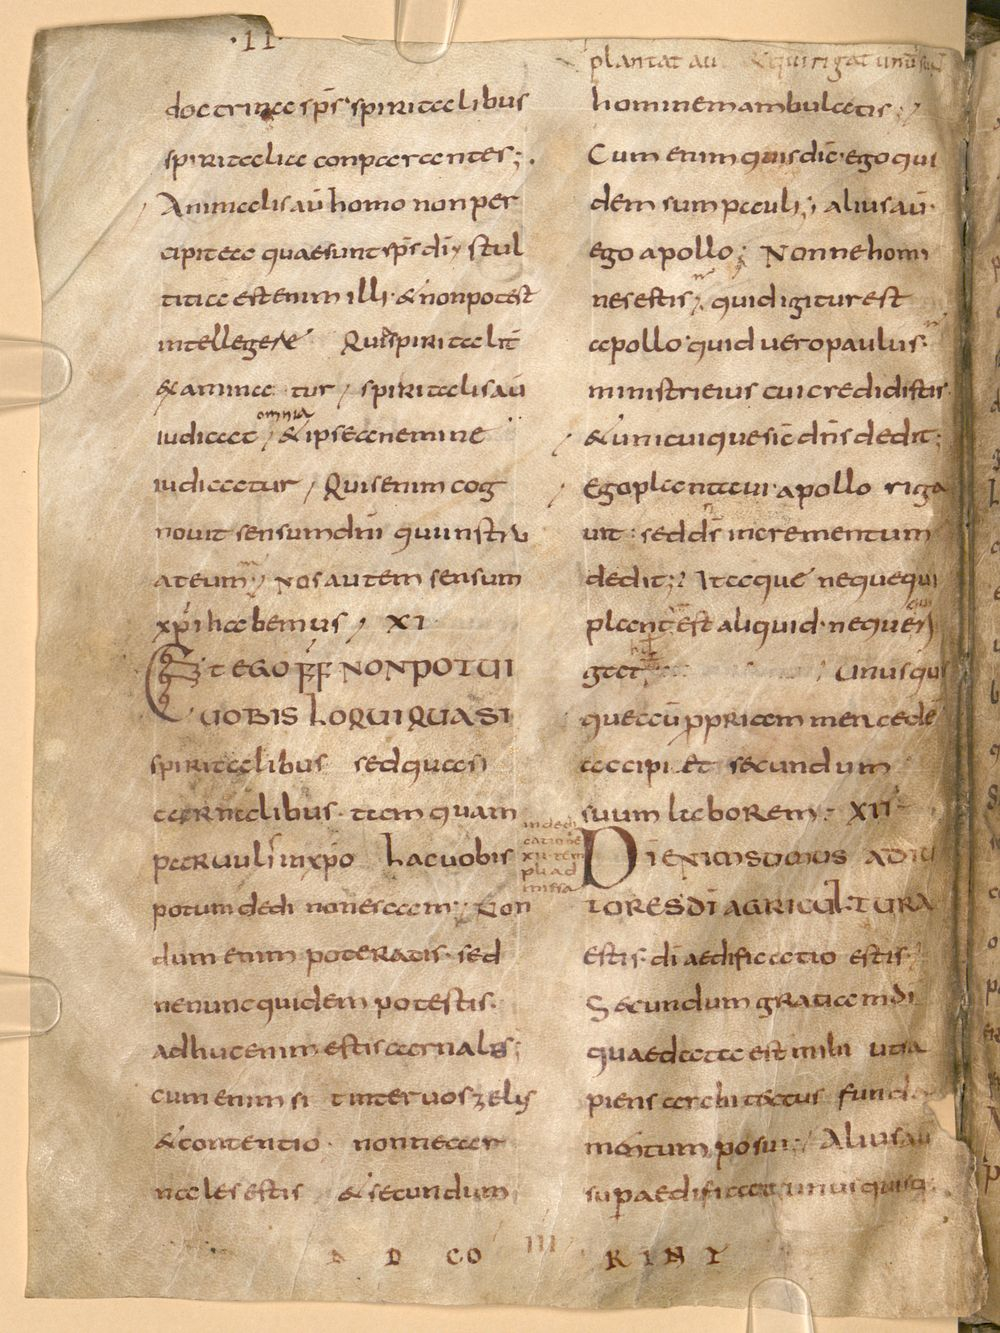 ·II·
doctrina sp̄s spiritalibus
spiritalia conparantes;.
Animalis aū homo non per
cipit ea quae sunt sp̄s dī, stul
titia est enim illi· & non potest
intellegere Quia spiritalit̄
& amina tur, spiritalis aū
omnia
iudicat, & ipse a nemine
iudicatur, Quis enim cog
novit sensum dn̄i qui instru
at eum, Nos autem sensum
xp̄i habemus, XI
ET EGO FF NON POTUI
UOBIS LOQUI QUASI
spiritalibus sed quasi
carnalibus· tam quam
paruulis in xp̄o Lac uobis
potum dedi non escam; Non
dum enim poteratis· sed
nec nunc quidem potestis·
adhuc enim estis carnales;
cum enim sit inter uos zelus
& contentio· nonne car
nales estis & secundum
plantat au & qui rigat unū su
hominem ambulatis;
Cum enim quis dic̄· ego qui
dem sum pauli; alius aū·
ego apollo; Nonne homi
nes estis, quid igitur est
apollo· quid uero paulus·
ministri eius cui credidistis
& unicuique sic dn̄s dedit;
Ego plantaui· apollo riga
uit: sed ds̄ incrementum
dedit; Itaque neque qui
plantat est aliquid· neque qui
rigat Unusquis
que aū propriam mercede
accipiet secundum
suum laborem· XII
in dedi
catione
xii tem
pli ad
missa
DI ENIM SUMUS ADIU
TORES DĪ AGRICULTURA
estis· dī aedificatio estis·
Secundum gratiam dī
quae data est mihi ut sa
piens architectus funda
mentum posui; Alius aū
supaedificat unusquisq·
III
A D CO RINT